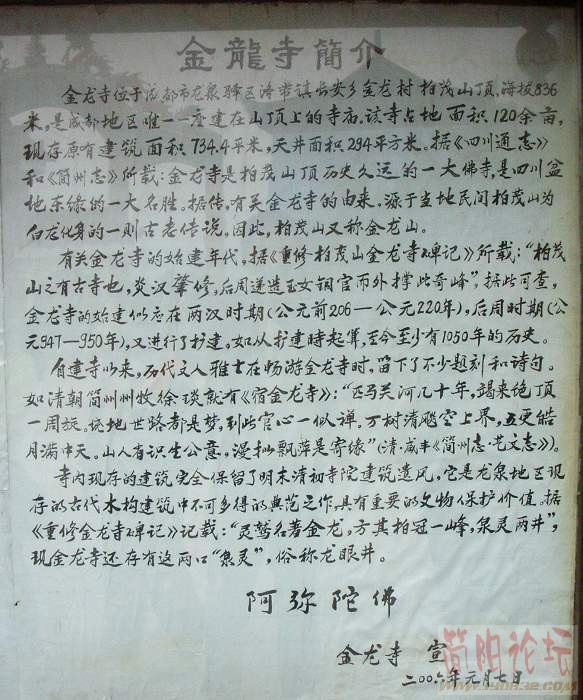 金龍寺簡介
金龙寺位于成都市龙泉驿区洛带镇长安乡金龙村柏茂山顶,海拔836
米,是成都地区唯一一座建在山顶上的寺庙。该寺占地面积120余亩,
现存原有建筑面积734.4平米,天井面积294平方米。据《四川通志》
和《简州志》所载:金龙寺是柏茂山顶历史久远的一大佛寺,是四川盆
地东缘的一大名胜。据传,有关金龙寺的由来,源于当地民间柏茂山为
白龙化身的一则古老传说,因此,柏茂山又称金龙山。
有关金龙寺的始建年代,据《重修柏茂山金龙寺碑记》所载:“柏茂
山之有古寺也,炎汉肇修,后周递造玉女铜官而外撑此奇峰”,据此可查,
金龙寺的始建似应在两汉时期(公元前206—公元220年),后周时期(公
元947—950年),又进行了扩建,如从扩建时起算,至今至少有1050年的历史。
自建寺以来,历代文人雅士在畅游金龙寺时,留下了不少题刻和诗句。
如清朝简州州牧徐琰就有《宿金龙寺》:“匹马关河几十年,竭来绝顶
一周旋。地世路都是梦,到此官心一似禅。万树清飔空上界,五更皓
月满中天。山人有识生公意,漫拟飘萍是寄缘”(清·咸丰《简州志·艺文志》)。
寺内现存的建筑完全保留了明末清初寺院建筑遗风,它是龙泉地区现
存的古代木构建筑中不可多得的典范之作,具有重要的文物保护价值。据
《重修金龙寺碑记》记载:“灵鹫名著金龙,方其柏冠一峰,泉灵两井”,
现金龙寺还存有这两口“泉灵”,俗称龙眼井。
阿弥陀佛
金龙寺 宣
二00六年元月七日
简阳论坛